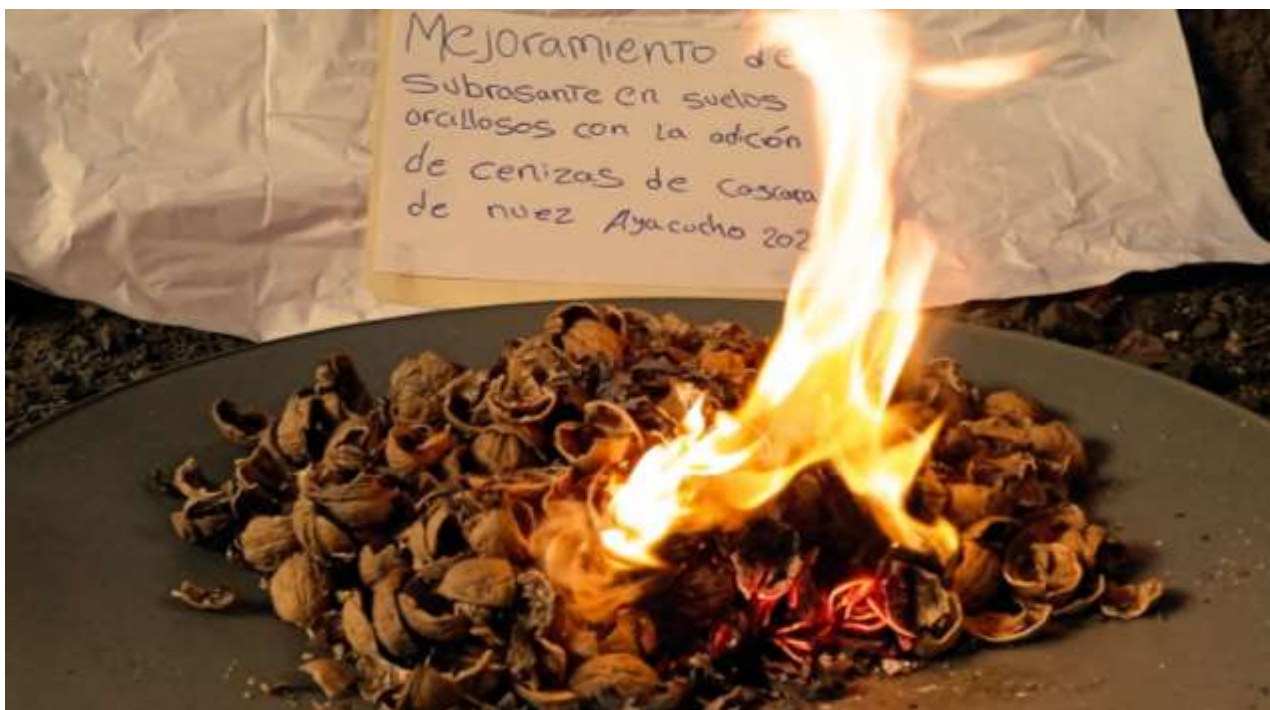 Mejoramiento de
Subrasante en suelos
arcillosos con la adición
de cenizas de cascara
de nuez Ayacucho 202